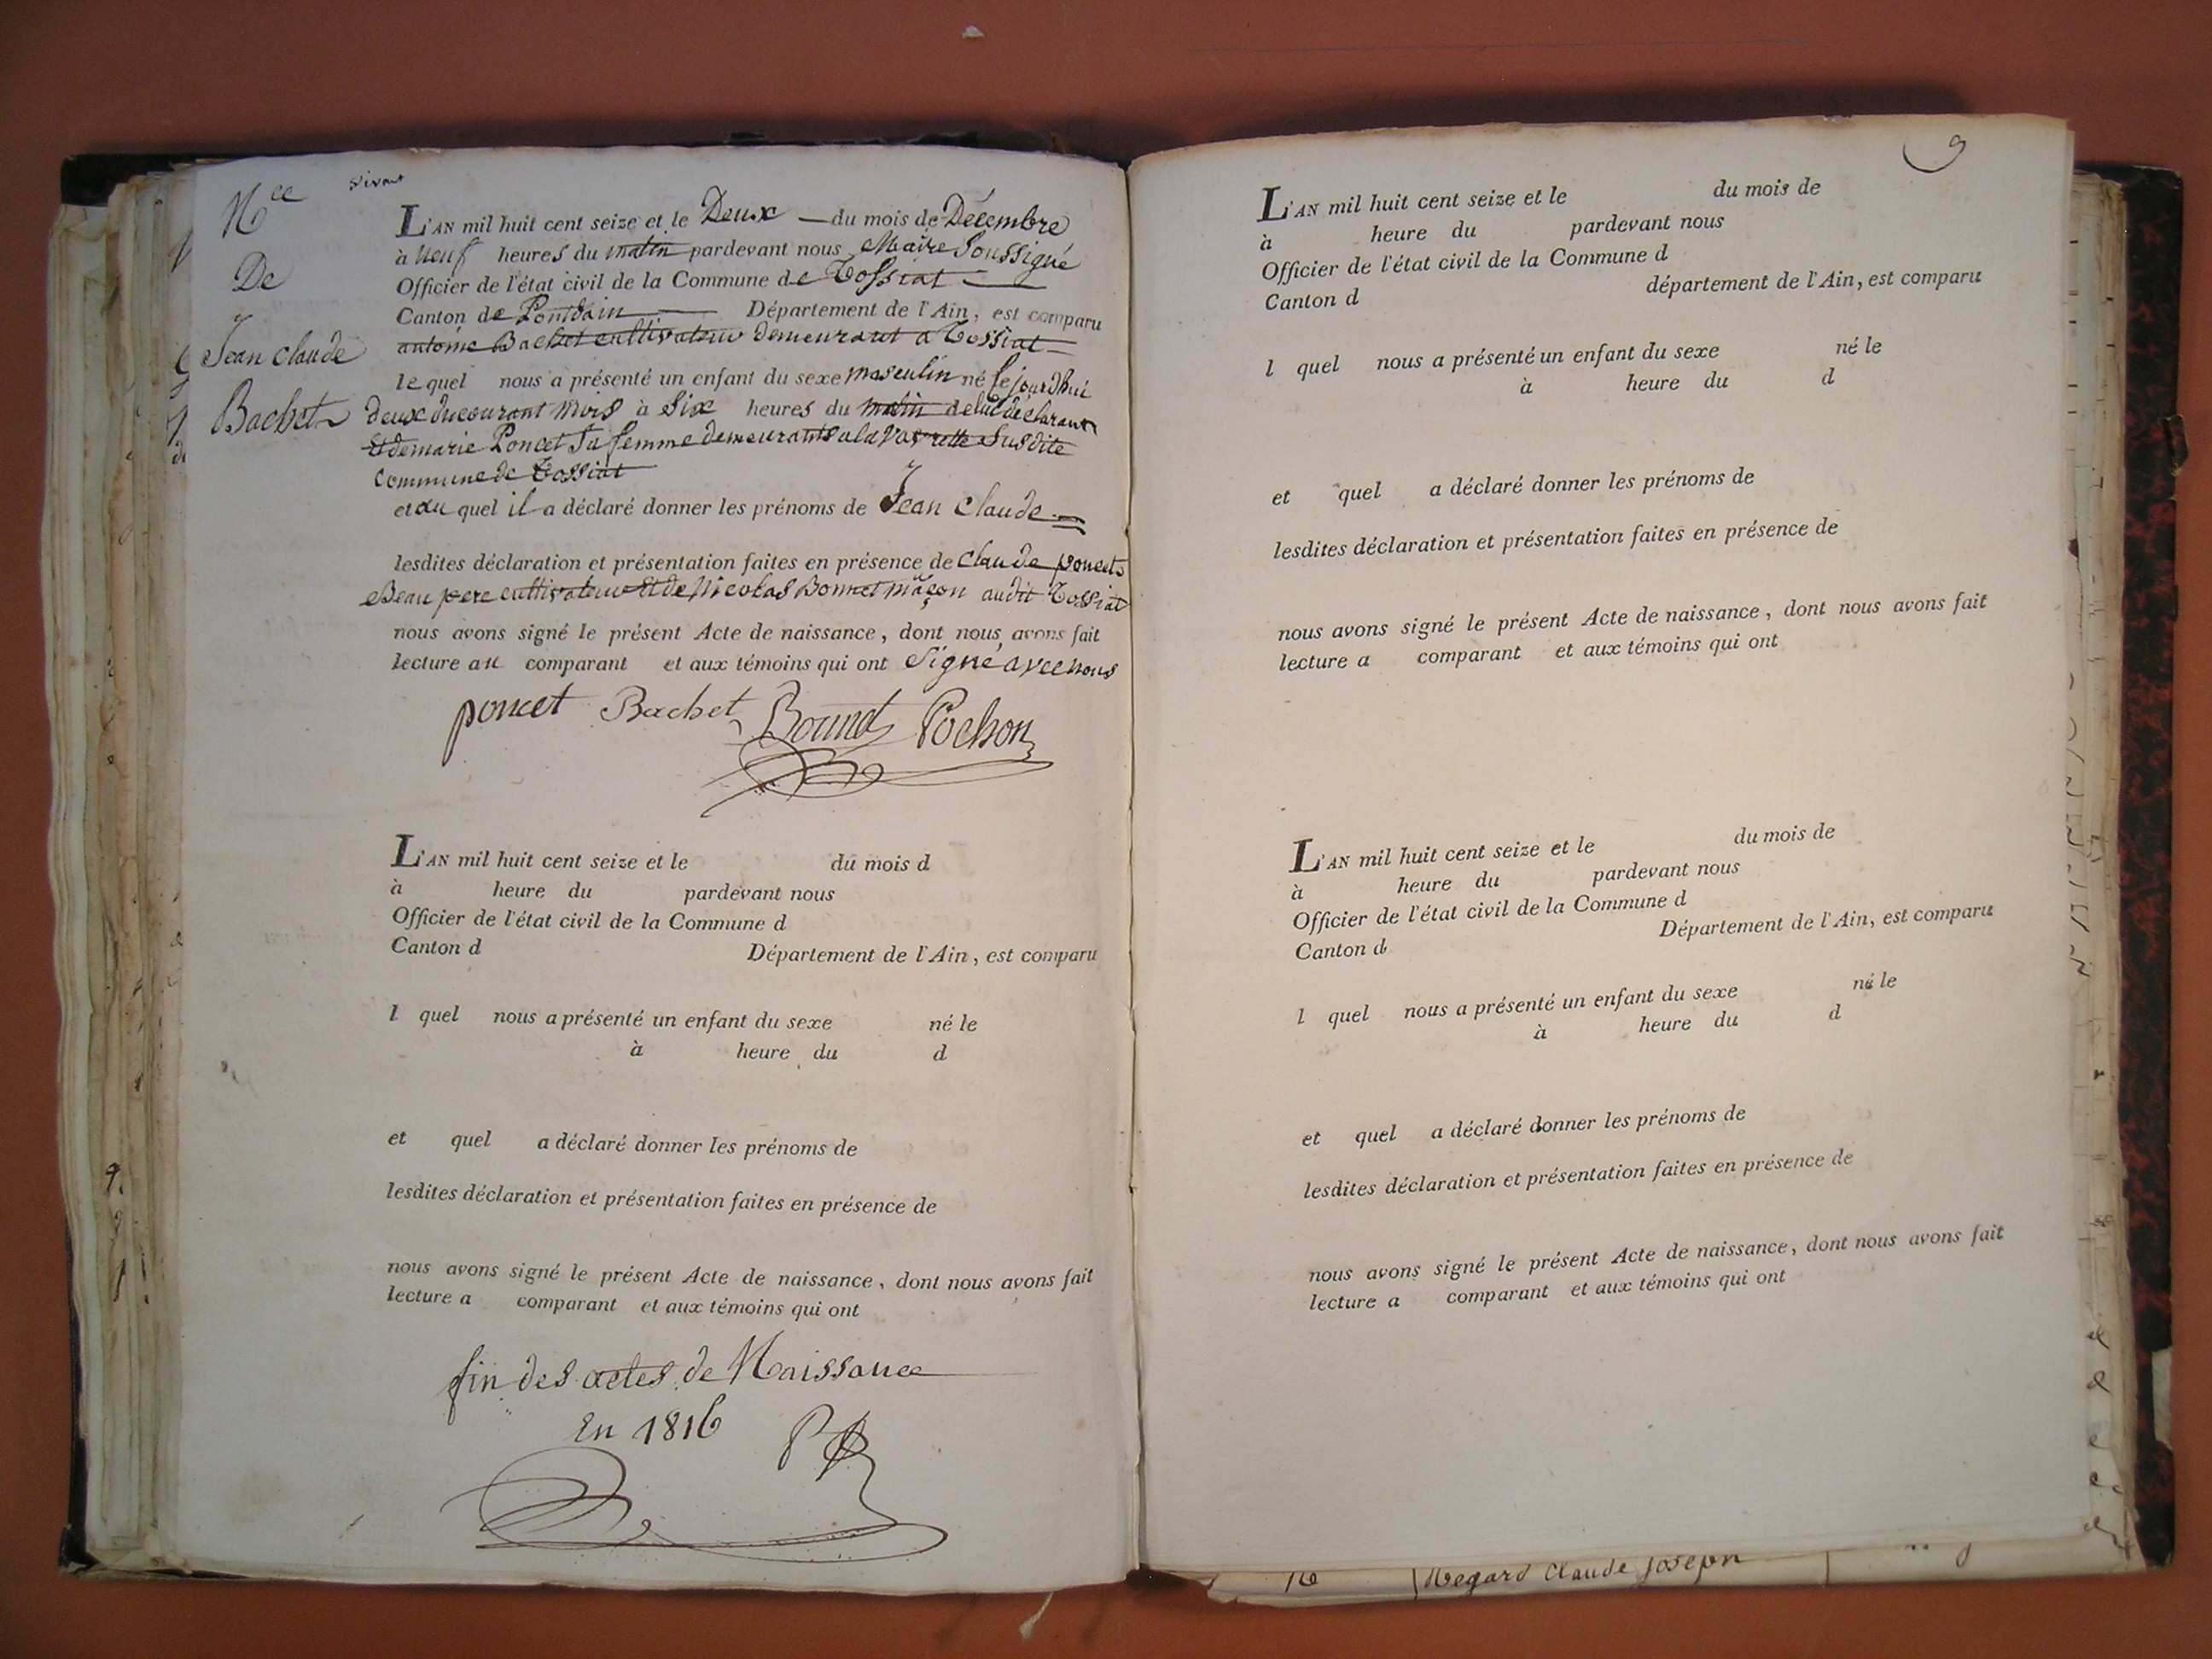 Nce
De
Jean Claude
Bachet
vivant
L'AN mil huit cent seize et le Deux du mois de Décembre
à neuf heures du matin pardevant nous Maire Soussigné
Officier de l'état civil de la Commune de Tossiat
Canton de Pontdain Département de l'Ain, est comparu
antoine Bachet cultivateur demeurant a Tossiat
lequel nous a présenté un enfant du sexe masculin né Cejourdhui
deux du courant mois à Six heures du matin de lui déclarant
Et de marie Poncet Sa femme demeurants a la Susdite
Commune de Tossiat
et au quel il a déclaré donner les prénoms de Jean Claude
lesdites déclaration et présentation faites en présence de Claude poncet
Beau pere cultivateur Et de Nicolas Bonnet maçon audit Tossiat
nous avons signé le présent Acte de naissance, dont nous avons fait
lecture au comparant et aux témoins qui ont Signé avec nous
poncet Bachet Bounet Pochon
L'AN mil huit cent seize et le du mois d
à heure du pardevant nous
Officier de l'état civil de la Commune d
Canton d Département de l'Ain, est comparu
l quel nous a présenté un enfant du sexe né le
à heure du d
et quel a déclaré donner les prénoms de
lesdites déclaration et présentation faites en présence de
nous avons signé le présent Acte de naissance, dont nous avons fait
lecture a comparant et aux témoins qui ont
fin des actes de Naissance
En 1816
9
L'AN mil huit cent seize et le du mois de
à heure du pardevant nous
Officier de l'état civil de la Commune d
Canton d département de l'Ain, est comparu
l quel nous a présenté un enfant du sexe né le
à heure du d
et quel a déclaré donner les prénoms de
lesdites déclaration et présentation faites en présence de
nous avons signé le présent Acte de naissance, dont nous avons fait
lecture a comparant et aux témoins qui ont
L'AN mil huit cent seize et le du mois de
à heure du pardevant nous
Officier de l'état civil de la Commune d
Canton d Département de l'Ain, est comparu
l quel nous a présenté un enfant du sexe né le
à heure du d
et quel a déclaré donner les prénoms de
lesdites déclaration et présentation faites en présence de
nous avons signé le présent Acte de naissance, dont nous avons fait
lecture a comparant et aux témoins qui ont
16 Claude Joseph